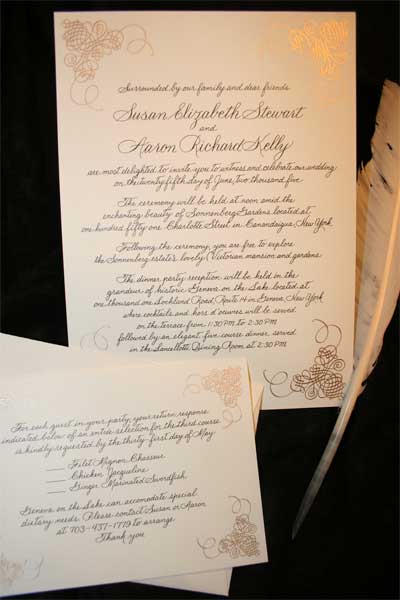 Surrounded by our family and dear friends
Susan Elizabeth Stewart
and
Aaron Richard Kelly
are most delighted to invite you to witness and celebrate our wedding
on the twenty fifth day of June, two thousand five
The ceremony will be held at noon amid the
enchanting beauty of Sonnenberg Gardens located at
one hundred fifty one Charlotte Street in Canandaigua, New York
Following the ceremony, you are free to explore
the Sonnenberg estate's lovely Victorian mansion and gardens
The dinner party reception will be held in the
grandeur of historic Geneva on the Lake located at
one thousand one Lochland Road, Route 14 in Geneva, New York
where cocktails and hors d'oeuvres will be served
on the terrace from 1:30 PM to 2:30 PM
followed by an elegant five course dinner served
in the Lancellotti Dining Room at 2:30 PM
For each guest in your party, your return response
indicated below of an entrée selection for the third course
is kindly requested by the thirty-first day of May
Filet Mignon Chasseur
Chicken Jacqueline
Ginger Marinated Swordfish
Geneva on the Lake can accomodate special
dietary needs. Please contact Susan or Aaron
at 703-437-1779 to arrange
Thank you